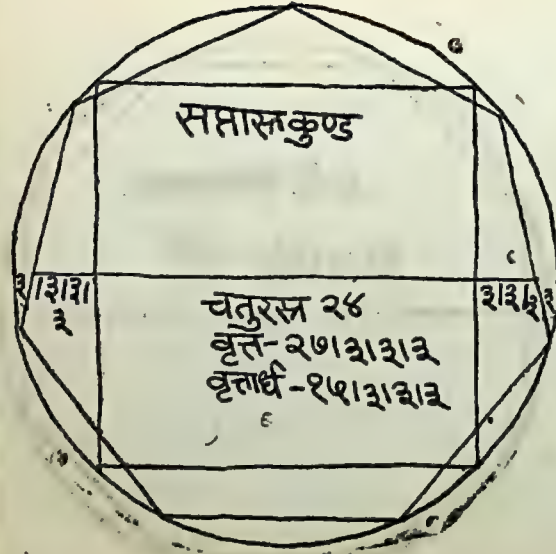 सप्तास्रकुण्ड
३।३।३।३
३।३।३।३
चतुरस्र २४
वृत्त-२७।३।३।३
वृत्तार्ध-१५।३।३।३